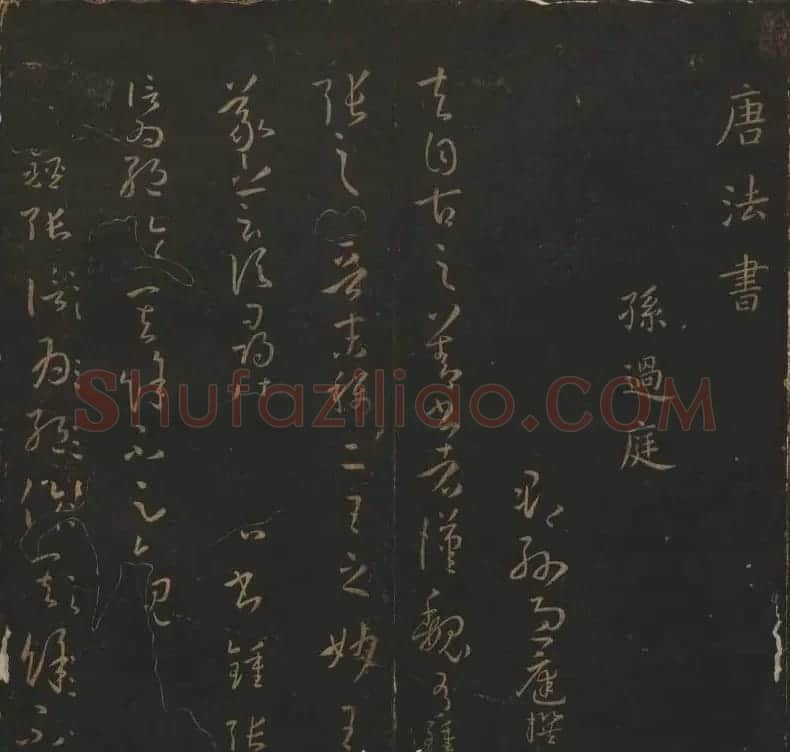 唐法書
孫過庭
郡孫過庭撰
夫自古之善書者漢魏有鍾
張之晉末稱二王之妙王
羲之云頃尋諸名書鍾張
信為絕倫其餘不足觀
鍾張信為絕倫其餘不
Shufaziliao.COM